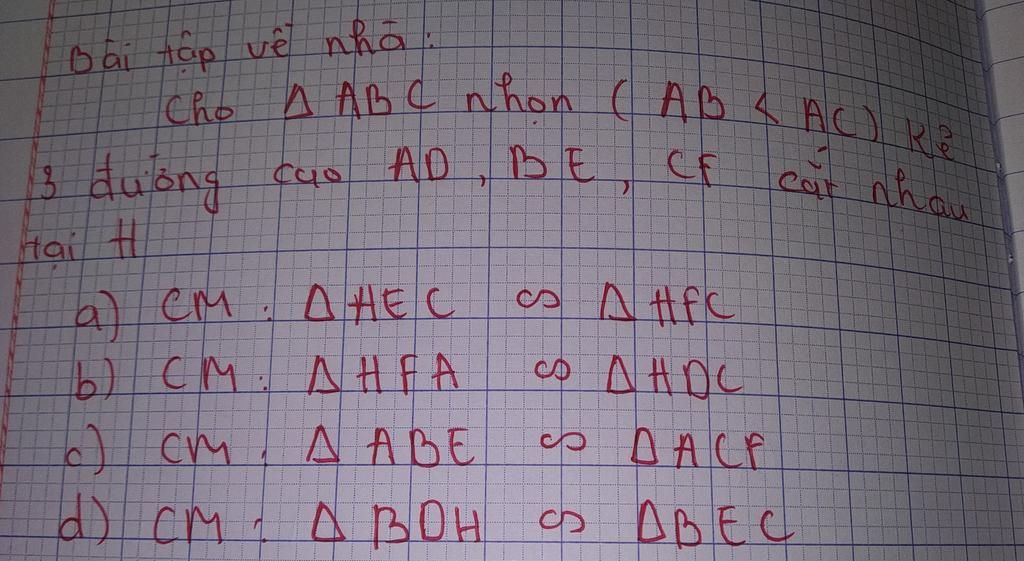 Bài tập về nhà:
Cho Δ ABC nhọn ( AB < AC) Kẻ
3 đường cao AD, BE, CF cắt nhau
tại H
a) CM: Δ HEC ∽ Δ HFC
b) CM: Δ HFA ∽ Δ HDC
c) CM: Δ ABE ∽ Δ ACF
d) CM: Δ BDH ∽ Δ BEC